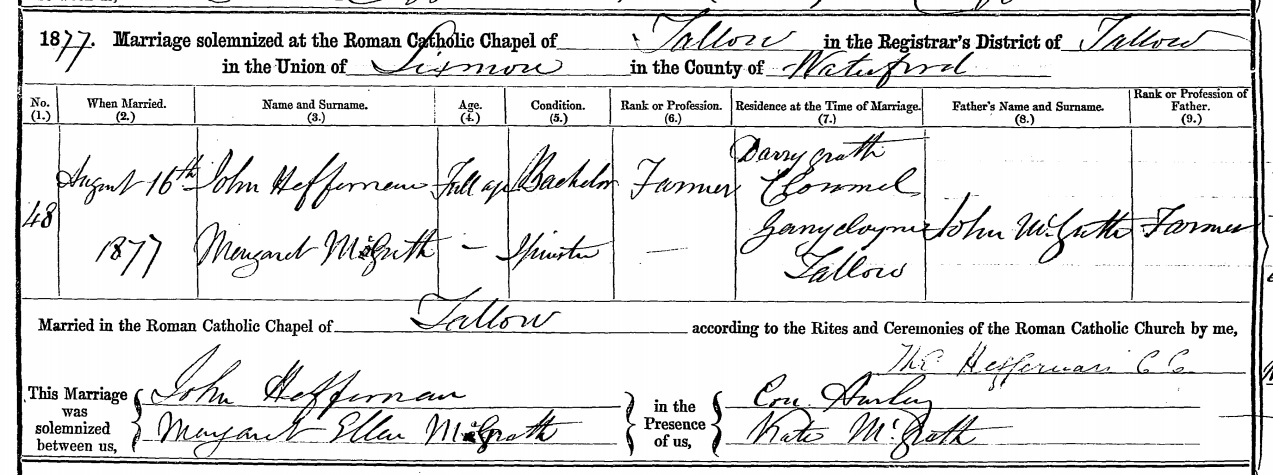 1877. Marriage solemnized at the Roman Catholic Chapel of Tallow in the Registrar's District of Tallow
in the Union of Lismore in the County of Waterford
No. (1.) When Married. (2.) Name and Surname. (3.) Age. (4.) Condition. (5.) Rank or Profession. (6.) Residence at the Time of Marriage. (7.) Father's Name and Surname. (8.) Rank or Profession of Father. (9.)
Darrygrath
August 16th John Heffernan Full age Bachelor Farmer Clonmel
48 Garrycloyne John McGrath Farmer
1877 Margaret McGrath – Spinster –
Tallow
Married in the Roman Catholic Chapel of Tallow according to the Rites and Ceremonies of the Roman Catholic Church by me,
Heffernan C C
This Marriage was solemnized between us, John Heffernan in the Presence of us, Con Hurley
Margaret Ellen McGrath Kate McGrath